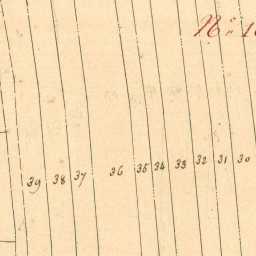 N° 1
39 38 37 36 35 34 33 32 31 30